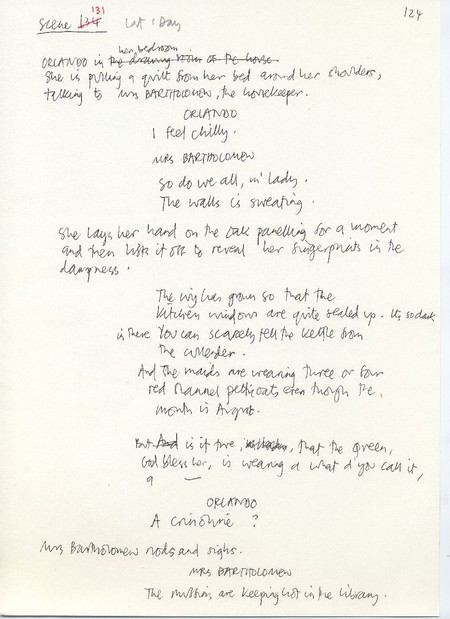 124
Scene 134 131 Int : Day
ORLANDO in the drawing room of the house her bedroom
She is pulling a quilt from her bed around her shoulders,
talking to Mrs BARTHOLOMEW, the housekeeper.
ORLANDO
I feel chilly.
MRS BARTHOLOMEW
So do we all, m'lady.
The walls is sweating.
She lays her hand on the oak panelling for a moment
and then lifts it off to reveal her fingerprints in the
dampness.
The ivy has grown so that the
kitchen windows are quite sealed up. Its so dark
in there You can scarcely tell the kettle from
the cullender.
And the maids are wearing three or four
red flannel petticoats even though the
month is August.
But And is it true, that the queen,
God bless her, is wearing a what d'you call it,
a —
ORLANDO
A crinoline ?
Mrs Bartholomew nods and sighs.
MRS BARTHOLOMEW
The muffins are keeping hot in the library.